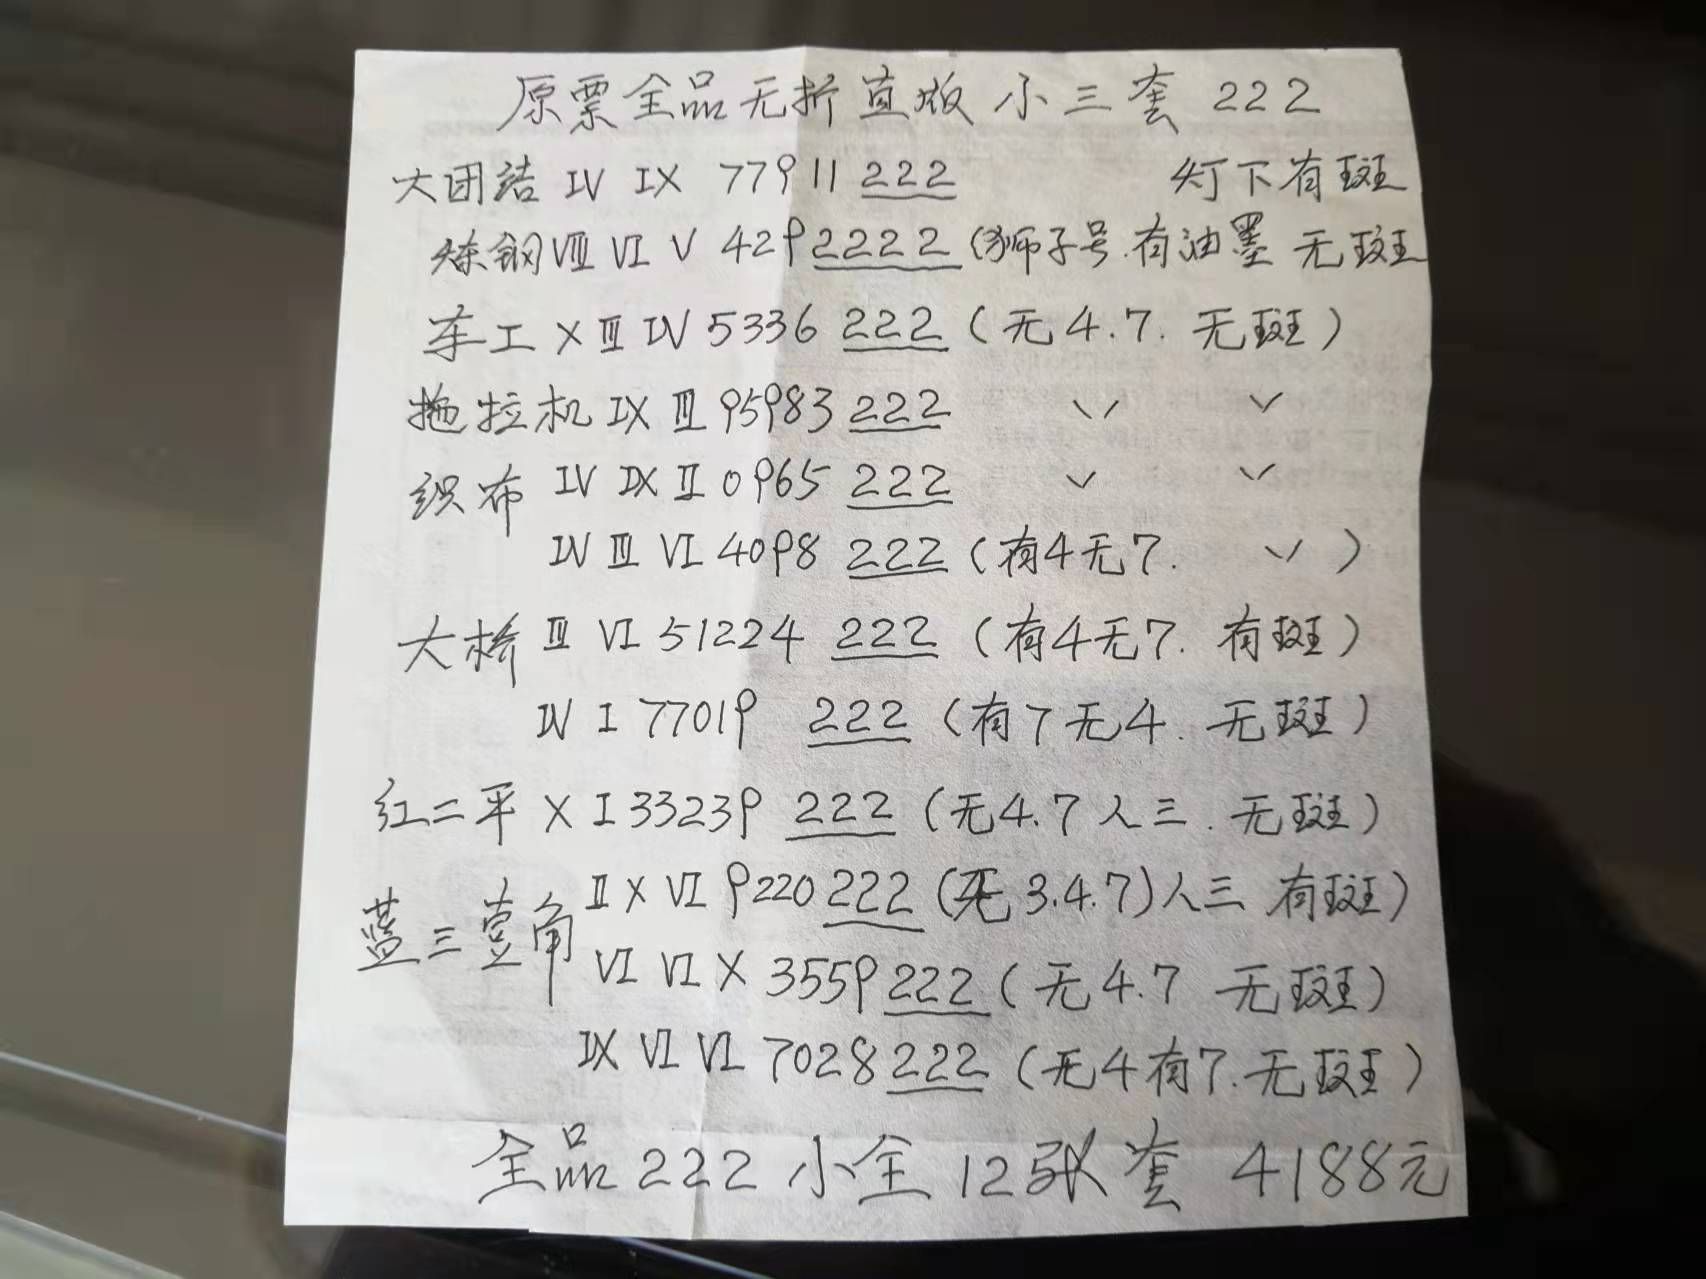 原票全品无折直版 小三套 222
大团结 IV IX 77911222 灯下有斑
炼钢 VIII VI V 4292222 (狮子号.有油墨 无斑
车工 X III IV 5336 222 (无4.7. 无斑)
拖拉机 IX III 95983 222 ✓ ✓
织布 IV IX II 0965 222 ✓ ✓
IV III VI 4098 222 (有4无7. ✓ )
大桥 III VI 51224 222 (有4无7. 有斑)
IV I 77019 222 (有7无4. 无斑)
红二平 X I 33239 222 (无4.7人三. 无斑)
蓝三壹角 II X VI 9220 222 (无3.4.7)人三 有斑)
VI VI X 3559 222 (无4.7 无斑)
IX VI VI 7028 222 (无4有7.无斑)
全品222小全12张套 4188元